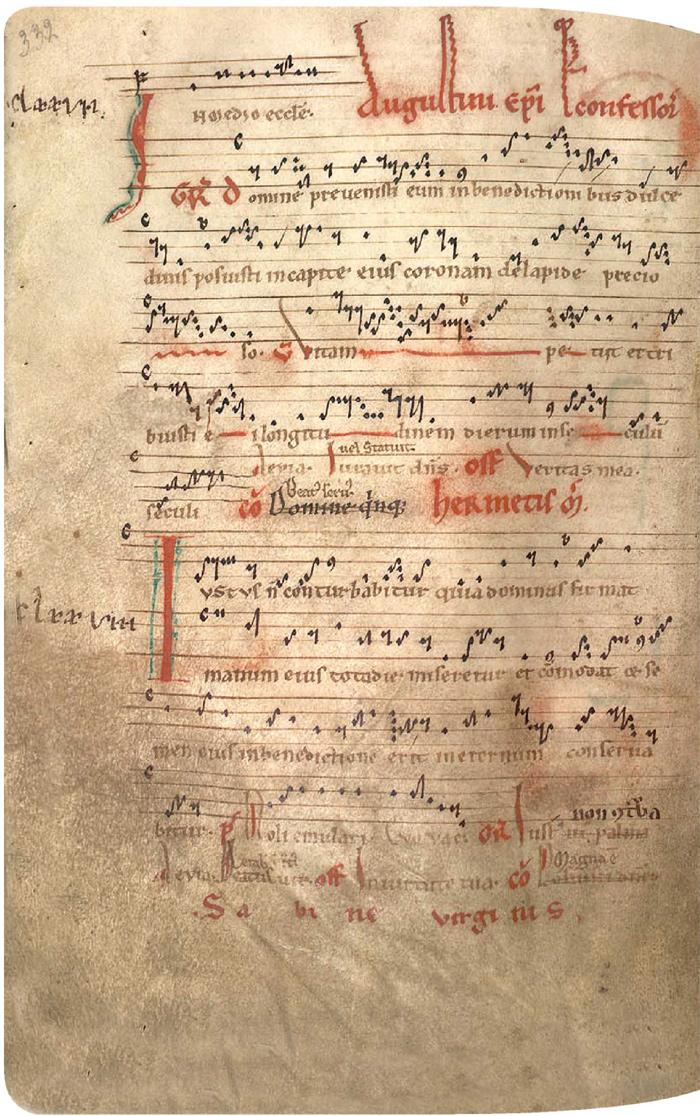 332
clxxvii.
N medio eccle. Augustini epi confessor
GR Domine prevenisti eum in benedictioni bus dulce
dinis posuisti in capite eius coronam de lapide precio
so. V Vitam pe tiit et tri
buisti e i longitu dinem dierum in se culū
vel Statuit.
alleuia. Iurauit dns. Off Veritas mea.
seculi cō Domine qnq; Beat seru' hermetis m.
clxxviii
IVSTVS n conturbabitur quia dominus fir mat
manum eius tota die miseretur et cōmodat et se
men eius in benedictione erit in eternum conserua
bitur. ps Noli emulari Evovae. GR Iust non cōtba
ut palma
alleuia. off In uirtute tua. cō Magna e
Sa bi ne virgi nis.